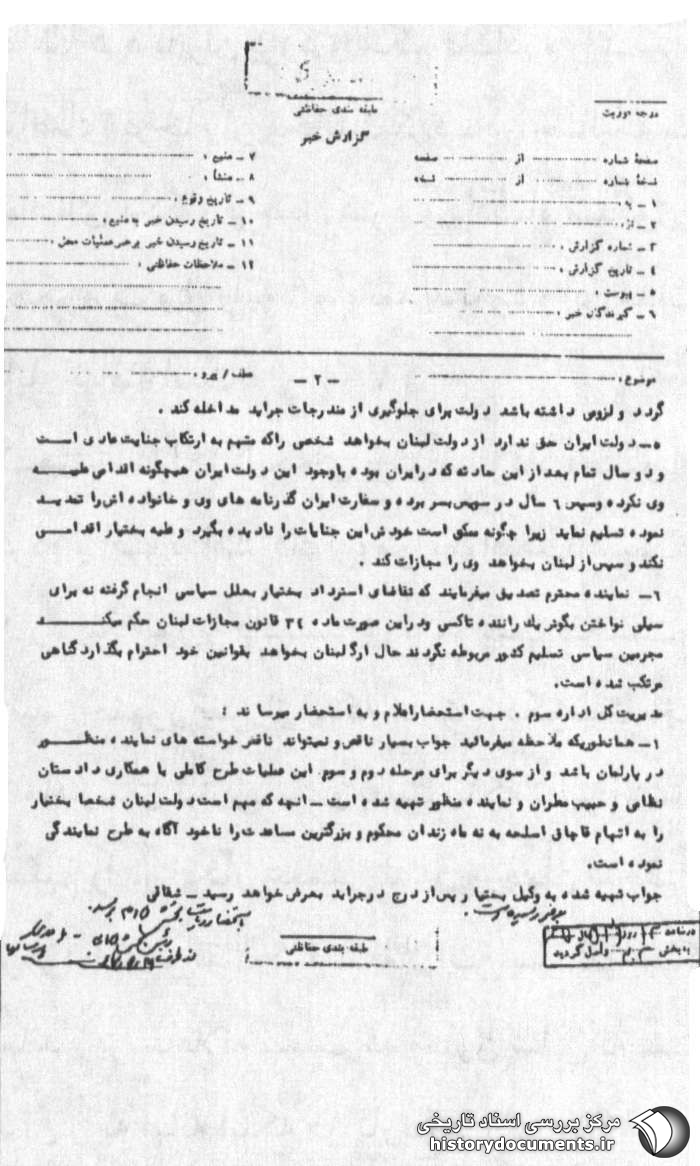 درجه فوریت
طبقه بندی حفاظتی
گزارش خبر
صفحهٔ شماره از صفحه
نسخهٔ شماره از نسخه
۱ ـ به :
۲ ـ از :
۳ ـ شماره گزارش :
۴ ـ تاریخ گزارش :
۵ ـ پیوست :
۶ ـ گیرندگان خبر :
۷ ـ منبع :
۸ ـ منشأ :
۹ ـ تاریخ وقوع :
۱۰ ـ تاریخ رسیدن خبر به منبع :
۱۱ ـ تاریخ رسیدن خبر برهبر عملیات محل :
۱۲ ـ ملاحظات حفاظتی :
موضوع :
ـ ۲ ـ
عطف / پیرو :
گردد و لزومی داشته باشد دولت برای جلوگیری از مندرجات جراید مداخله کند .
۵ـ دولت ایران حق ندارد از دولت لبنان بخواهد شخصی راکه متهم به ارتکاب جنایت عادی است
و دو سال تمام بعد از این حادثه که در ایران بوده باوجود این دولت ایران هیچگونه اقدامی علیه
وی نکرده وسپس ۶ سال در سویس بسر برده و سفارت ایران گذرنامه های وی و خانواده اش را تمدید
نموده تسلیم نماید زیرا چگونه ممکن است خودش این جنایات را نادیده بگیرد و علیه بختیار اقدامی
نکند و سپس از لبنان بخواهد وی را مجازات کند .
۶ـ نماینده محترم تصدیق میفرمایند که تقاضای استرداد بختیار بعلل سیاسی انجام گرفته نه برای
سیلی نواختن بگوش یك راننده تاکسی ودراین صورت ماده ۳۴ قانون مجازات لبنان حکم میکند
مجرمین سیاسی تسلیم کشور مربوطه نگردند حال اگر لبنان بخواهد بقوانین خود احترام بگذارد گناهی
مرتکب شده است.
مدیریت کل اداره سوم . جهت استحضار اعلام و به استحضار میرساند :
۱ـ همانطوریکه ملاحظه میفرمائید جواب بسیار ناقص و نمیتواند ناقض خواسته های نماینده منظور
در پارلمان باشد و از سوی دیگر برای مرحله دوم و سوم این عملیات طرح کاملی با همکاری دادستان
نظامی و حبیب مطران و نماینده منظور تهیه شده است ـ آنچه که مهم است دولت لبنان شخصا بختیار
را به اتهام قاچاق اسلحه به نه ماه زندان محکوم و بزرگترین مساعدت را ناخود آگاه به طرح نمایندگی
نموده است.
جواب تهیه شده به وکیل بختیا و پس از درج در جراید بعرض خواهد رسید ـ شقاقی
طبقه بندی حفاظتی
در ساعت روز
به بخش واصل گردید
مرکز بررسی اسناد تاریخی
historydocuments.ir